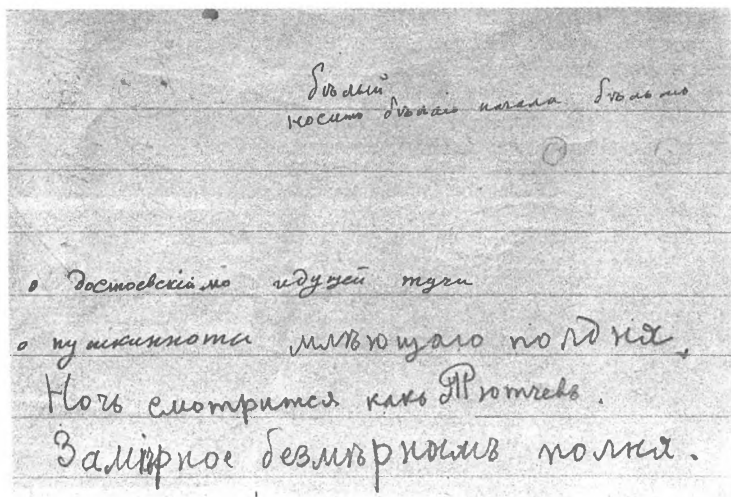 бѣлый
носитъ бѣлаго начала бѣльмо
о достоевскиймо идущей тучи
о пушкинноты млѣющаго полдня.
Ночь смотрится какъ Тютчевъ.
Замѣрное безмѣрнымъ полня.